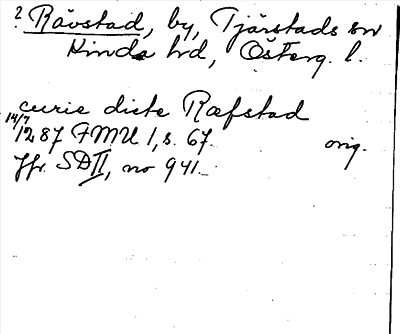 ? Rävstad, by, Tjärstads sn
Kinda hd, Österg. l.
curie dicte Ræfstad
14/7
1287 FMU 1, s. 67. orig.
Jfr SD II, no 941.